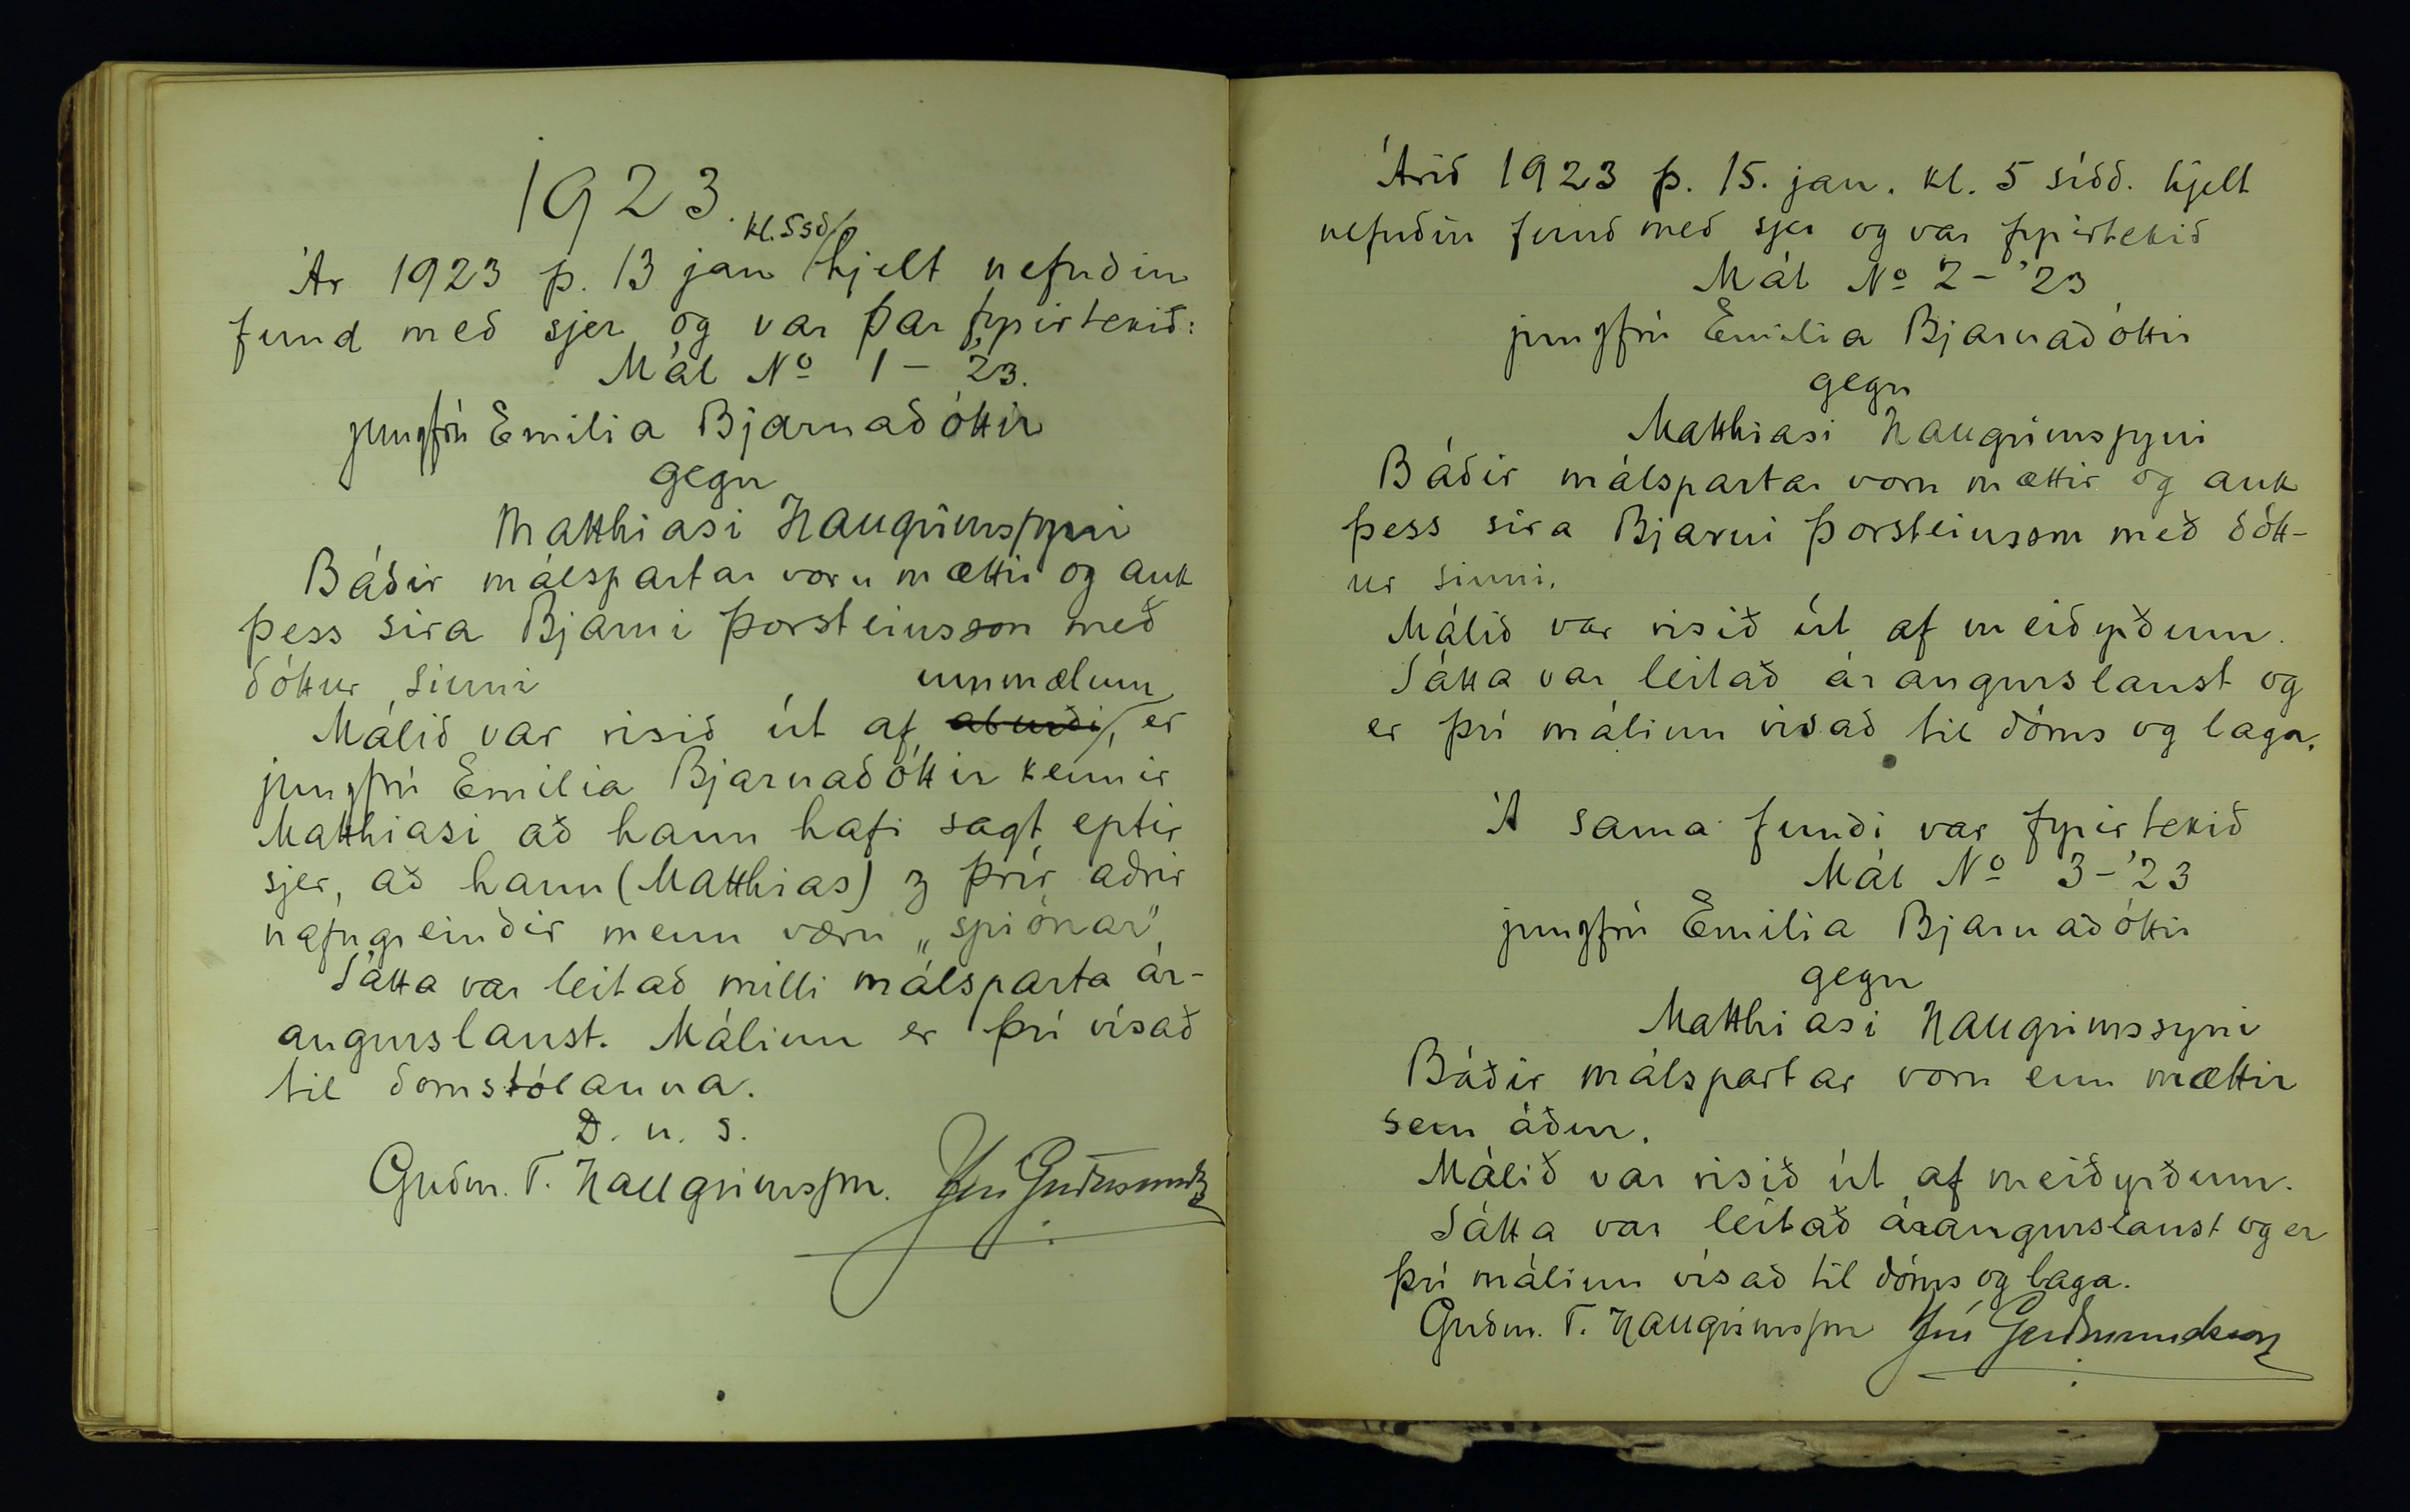 1923.
kl. 5 sd/
Ár 1923 þ. 13 jan /hjelt nefndin
fund með sjer og var þar fyrirtekið:
Mál No 1 - '23.
jungfrú Emilia Bjarnadóttir
gegn
Matthiasi Hallgrimssyni
Báðir málspartar voru mættir og auk
þess sira Bjarni Þorsteinsson með
dóttur sinni
ummælum
Málið var risið út af aburði/, er
jungfrú Emilia Bjarnadóttir kennir
Matthiasi að hann hafi sagt eptir
sjer, að hann (Matthias) og þrír aðrir
nafngreindir menn væru „spiónar”
Sátta var leitað milli málsparta ár-
angurslaust. Málinu er því vísað
til domstólanna.
D. u. s.
Guðm. T. Hallgrimsson. Jón Guðmundss
Árið 1923 þ. 15. jan. kl. 5 síðd. hjelt
nefndin fund með sjer og var fyrirtekið
Mál No 2 - '23
jungfrú Emilia Bjarnadóttir
gegn
Matthiasi Hallgrimssyni
Báðir málspartar voru mættir og auk
þess sira Bjarni Þorsteinsson með dótt-
ur sinni.
Málið var risið út af meiðyrðum.
Sátta var leitað árangurslaust og
er því málinu visað til dóms og laga.
Á sama fundi var fyrirtekið
Mál No 3 - '23
jungfrú Emilia Bjarnadóttir
gegn
Matthiasi Hallgrimssyni
Báðir málspartar voru enn mættir
sem áður.
Málið var risið út af meiðyrðum.
Sátta var leitað árangurslaust og er
því málinu vísað til dóms og laga.
Guðm. T. Hallgrimsson Jón Guðmundsson